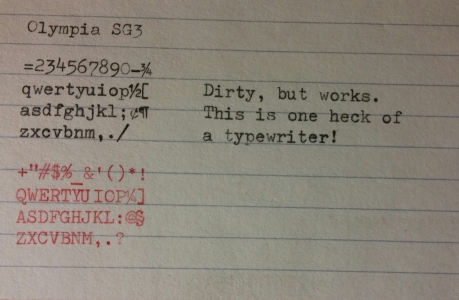 Olympia SG3
=234567890-¾
qwertyuiop½[
asdfghjkl;¢¶
zxcvbnm,./
Dirty, but works.
This is one heck of
a typewriter!
+"#$%_&'()*!
QWERTYUIOP¼]
ASDFGHJKL:@§
ZXCVBNM,.?